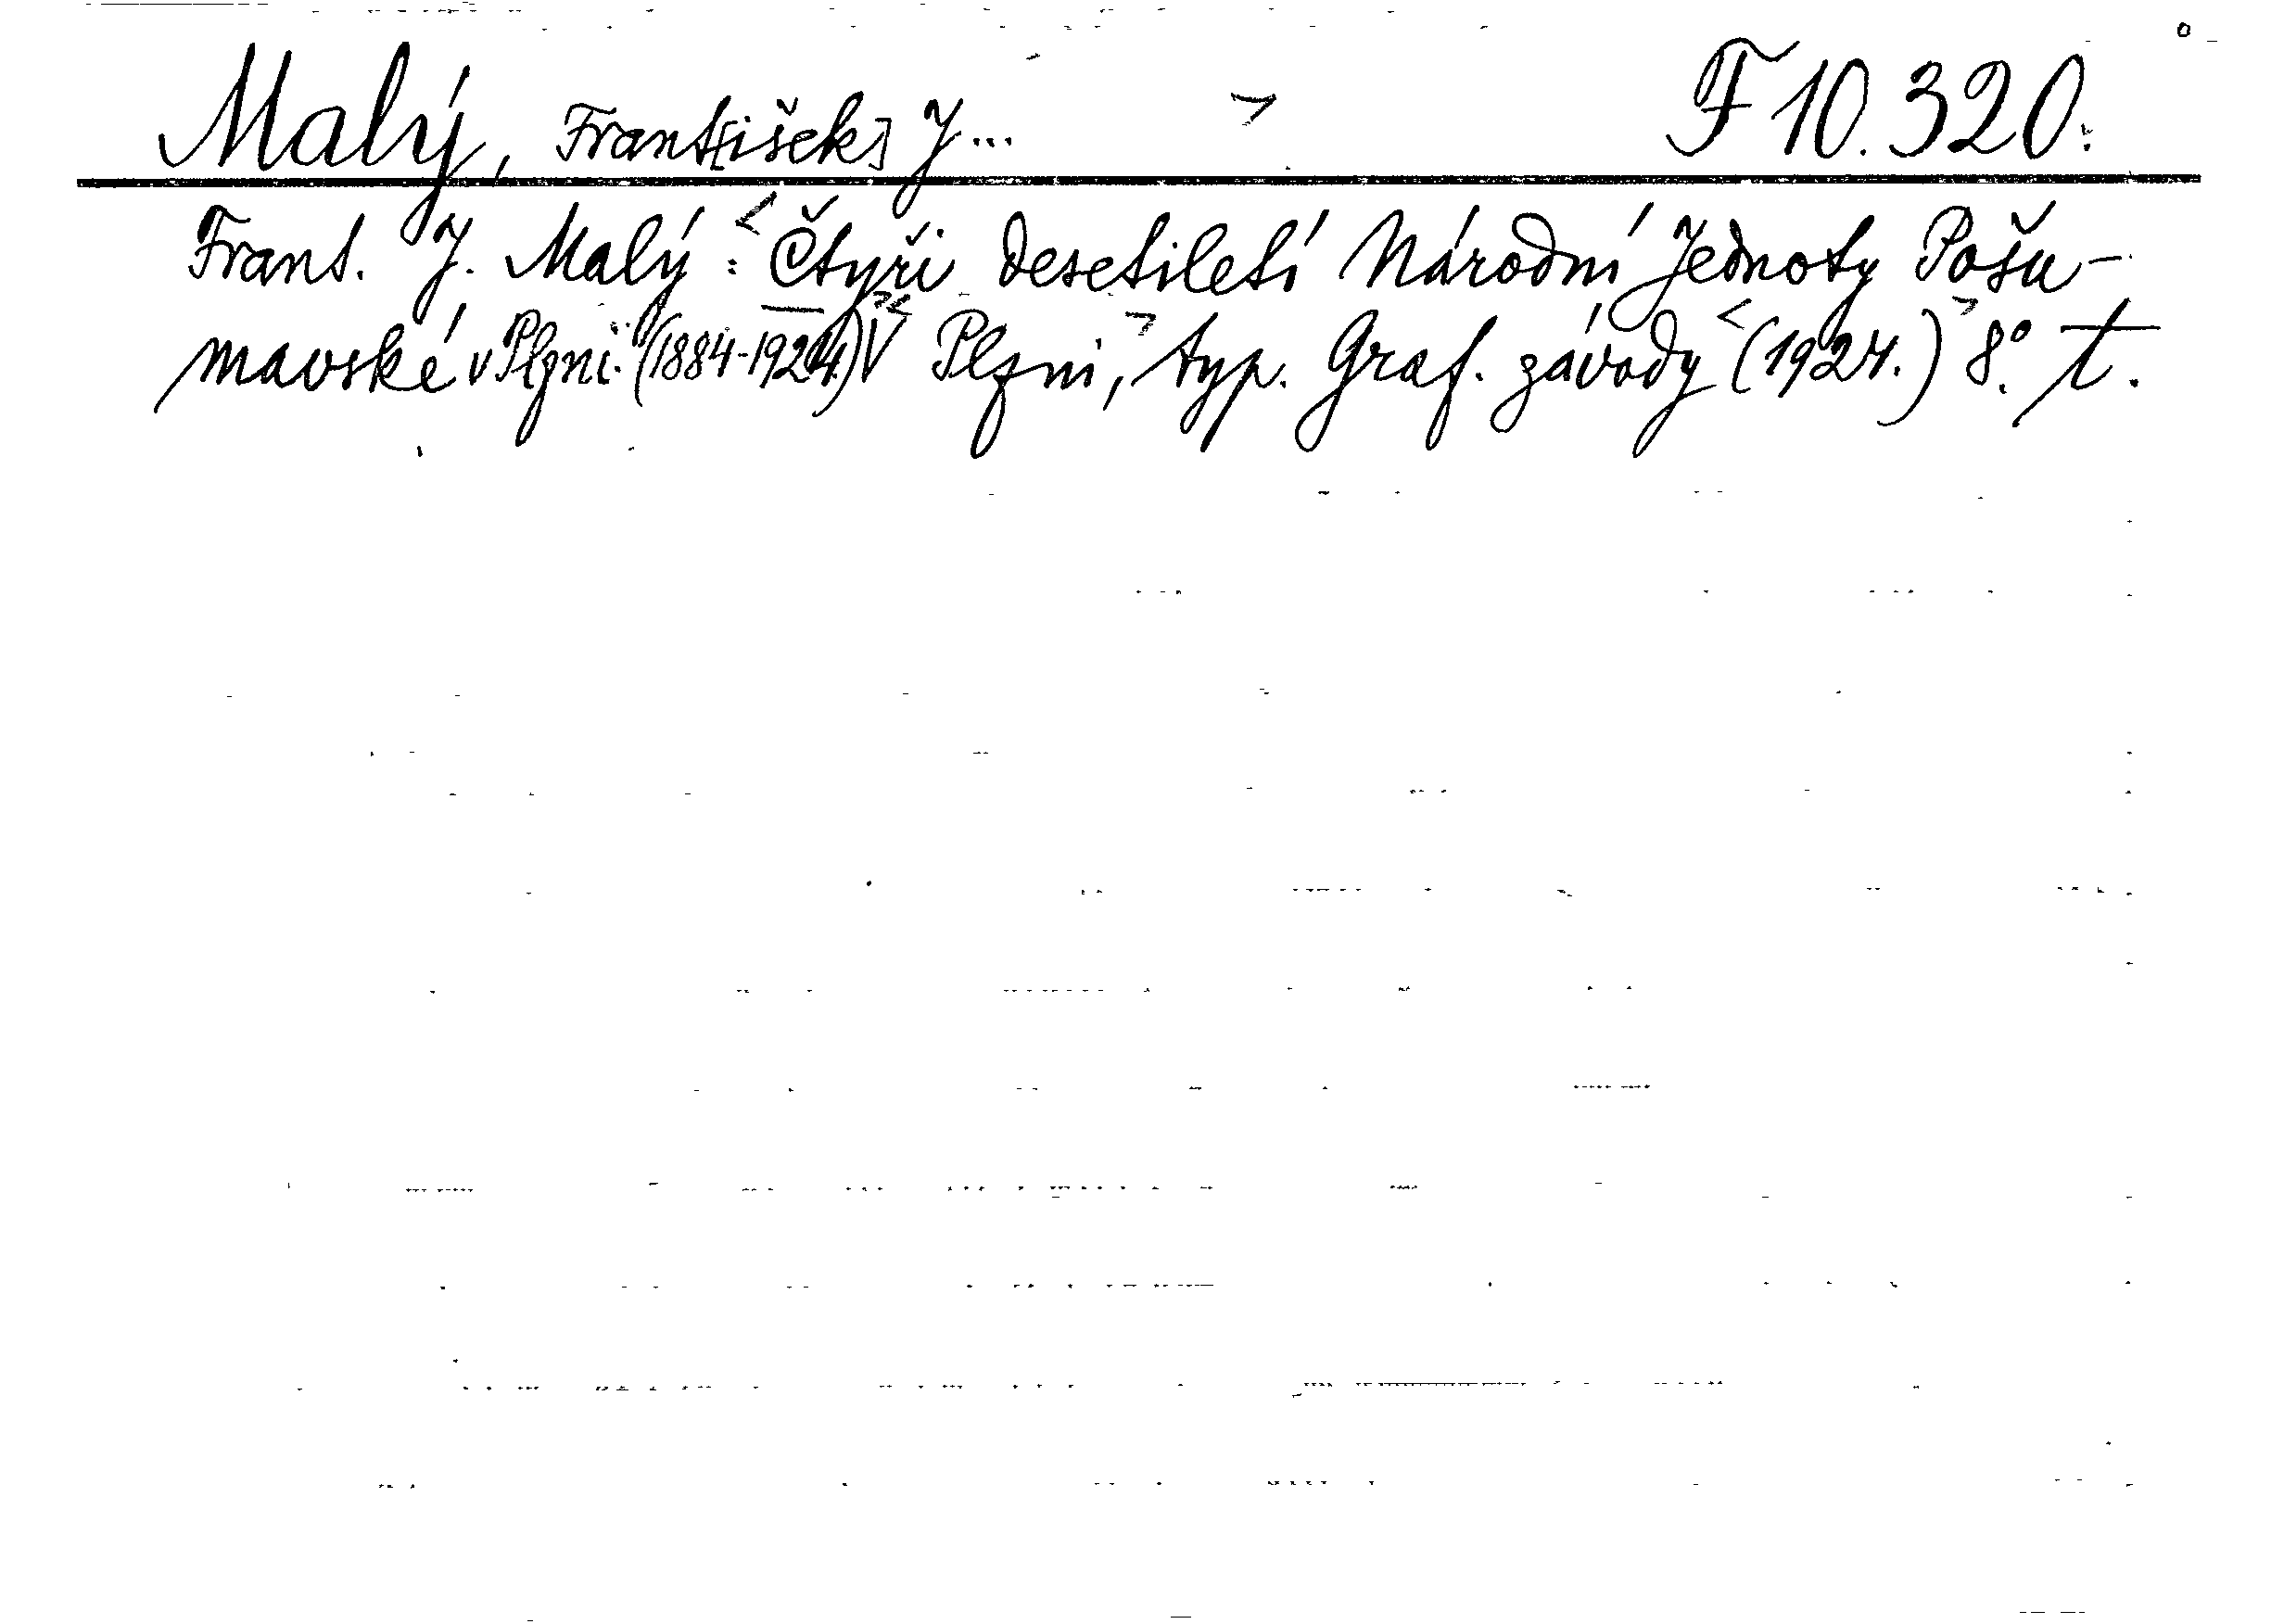 Malý, Frant[išek] J... F 10.320.
Frant. J. Malý: Čtyři desetiletí Národní Jednoty Pošu-
mavské v Plzni. (1884-1924.) V Plzni, typ. Graf. závody (1924.) 8°. T.